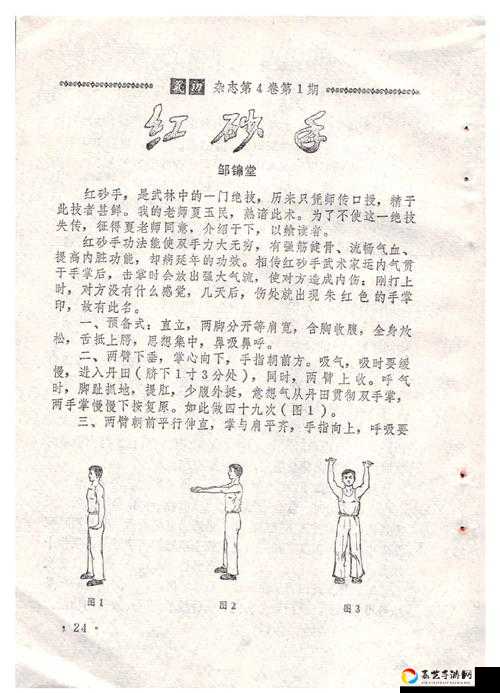 气功 杂志第4卷第1期
红砂手
邹锦堂
红砂手，是武林中的一门绝技，历来只凭师传口授，精于
此技者甚鲜。我的老师夏玉民，熟谙此术。为了不使这一绝技
失传，征得夏老师同意，介绍于下，以飨读者。
红砂手功法能使双手力大无穷，有强筋健骨、流畅气血、
提高内脏功能，却病延年的功效。相传红砂手武术家运内气贯
于手掌后，击掌时会放出强大气流，使对方造成内伤；刚打上
时，对方没有什么感觉，几天后，伤处就出现朱红色的手掌
印，故有此名。
一、预备式：直立，两脚分开等肩宽，含胸收腹，全身放
松，舌抵上腭，思想集中，鼻吸鼻呼。
二、两臂下垂，掌心向下，手指朝前方。吸气，吸时要缓
慢，进入丹田（脐下1寸3分处），同时，两臂上收。呼气
时，脚趾抓地，提肛，少腹外挺，意想气从丹田贯彻双手掌，
两手掌慢慢下按复原。如此做四十九次（图1）。
三、两臂朝前平行伸直，掌与肩平齐，手指向上，呼吸要
图1
图2
图3
·24·
嘉艺手游网